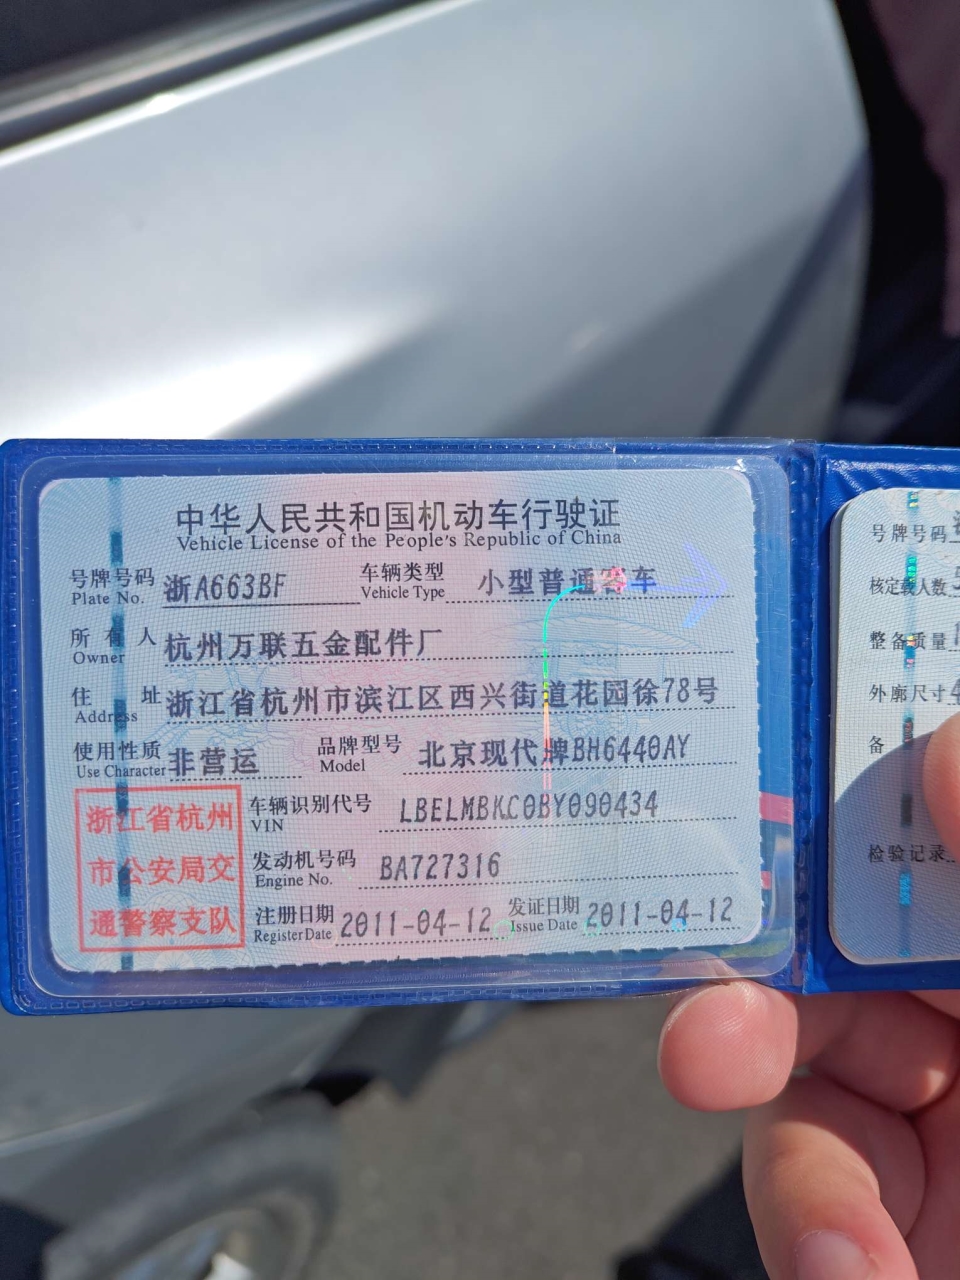 中华人民共和国机动车行驶证
Vehicle License of the People's Republic of China
号牌号码 浙A663BF 车辆类型 小型普通客车
Plate No. Vehicle Type
所有人 杭州万联五金配件厂
Owner
住址 浙江省杭州市滨江区西兴街道花园徐78号
Address
使用性质 非营运 品牌型号 北京现代牌BH6440AY
Use Character Model
浙江省杭州
市公安局交
通警察支队
车辆识别代号 LBELMBKC0BY090434
VIN
发动机号码 BA727316
Engine No.
注册日期 2011-04-12 发证日期 2011-04-12
Register Date Issue Date
号牌号码
核定载人数
整备质量
外廓尺寸
备
检验记录